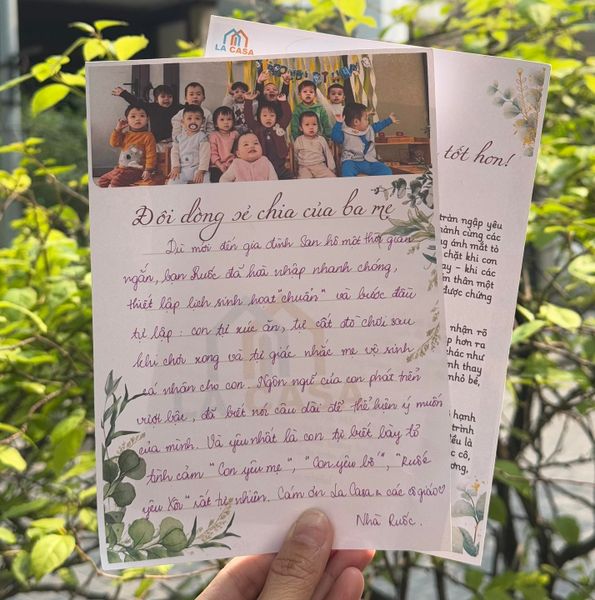 LA CASA
Đôi dòng sẻ chia của ba mẹ
Dù mới đến gia đình San hô một thời gian
ngắn, bạn Ruốc đã hoà nhập nhanh chóng,
thiết lập lịch sinh hoạt "chuẩn" và bước đầu
tự lập: con tự xúc ăn, tự cất đồ chơi sau
khi chơi xong và tự giác nhắc mẹ vệ sinh
cá nhân cho con. Ngôn ngữ của con phát triển
vượt bậc, đã biết nói câu dài để thể hiện ý muốn
của mình. Và yêu nhất là con tự biết bày tỏ
tình cảm "Con yêu mẹ", "Con yêu bố", "Ruốc
yêu Xôi" rất tự nhiên. Cảm ơn La Casa & các cô giáo
Nhà Ruốc.
tốt hơn!
tràn ngập yêu
hành cùng các
ng ánh mắt tò
chặt khi con
ay – khi các
m thân một
được chứng
nhận rõ
p hơn ra
khác như
nh thay
nhỏ bé,
hạnh
trình
ều là
c cô,
ơng,